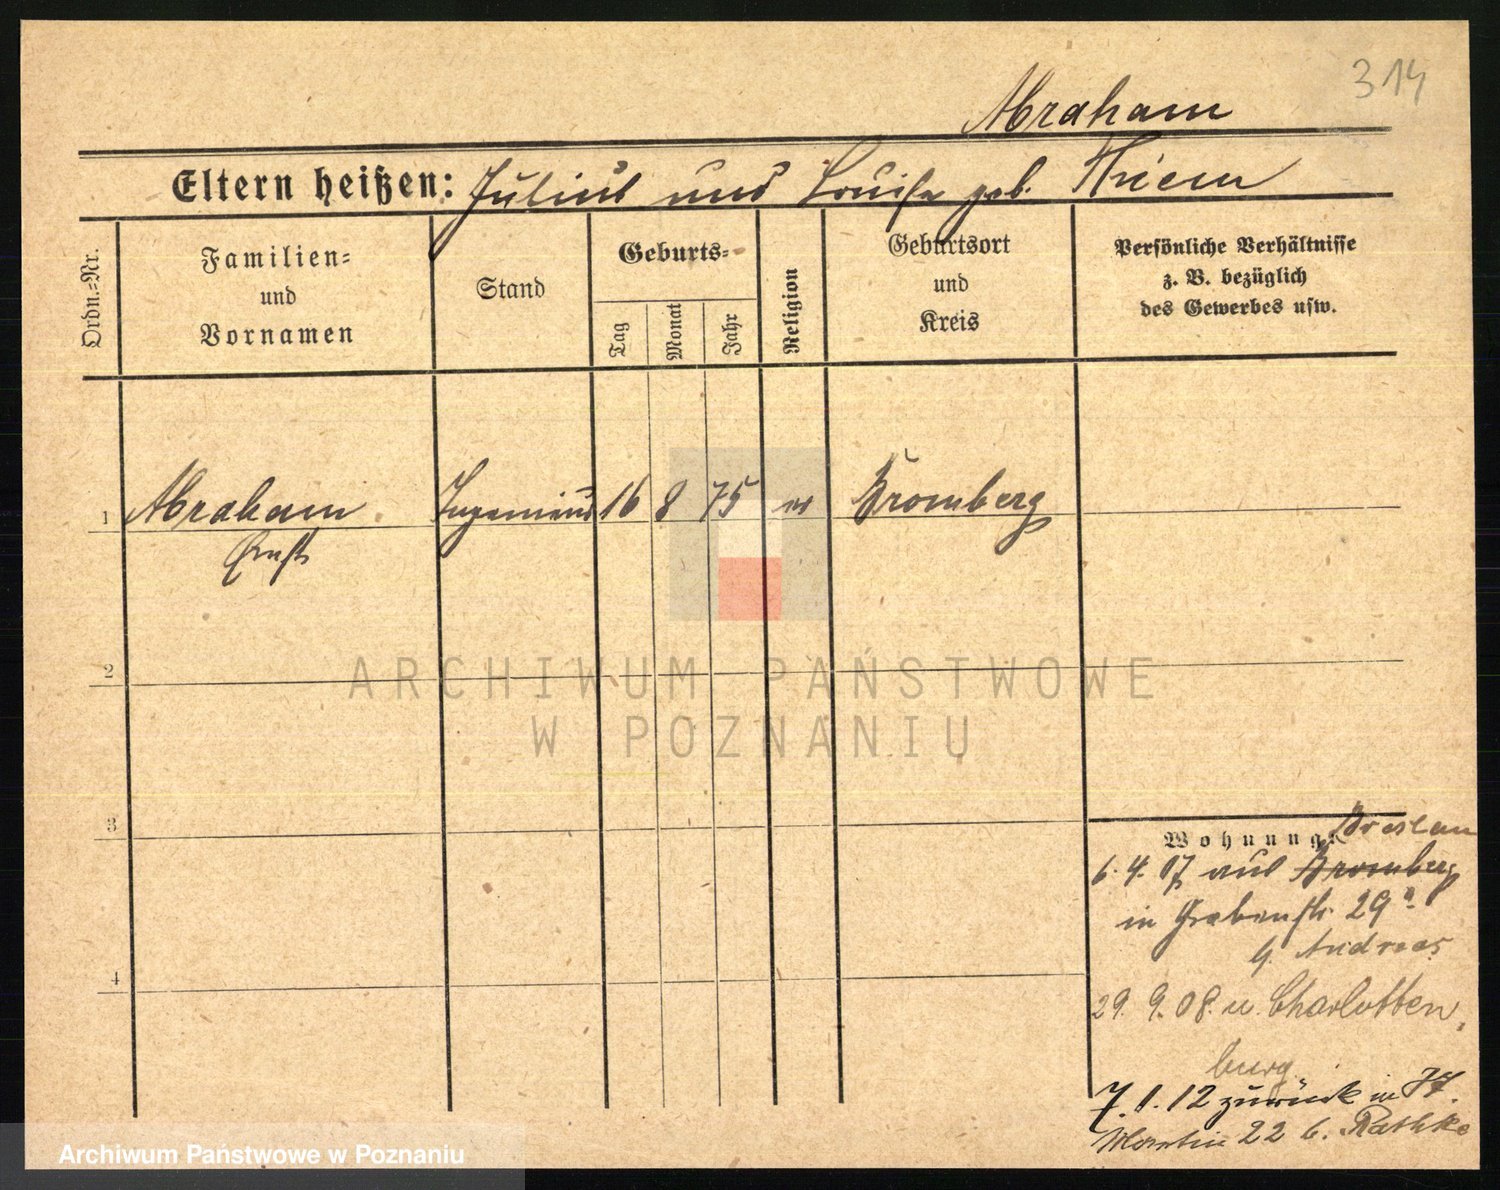 314
Abraham
Eltern heißen: Julius und Louise geb. Thiem
Ordn.=Nr.
Familien=
und
Vornamen
Stand
Geburts=
Tag
Monat
Jahr
Religion
Geburtsort
und
Kreis
Persönliche Verhältnisse
z. B. bezüglich
des Gewerbes usw.
1 Abraham Ingenieur 16 8 75 ev Bromberg
Ernst
2
ARCHIWUM PAŃSTWOWE
W POZNANIU
3
4
Wohnung: Breslau
6.4.07 aus Bromberg
in Grabenstr. 29
b. Andreas
29.9.08. n. Charlotten
burg
7.1.12 zurück in St.
Martin 22 b. Rathke
Archiwum Państwowe w Poznaniu